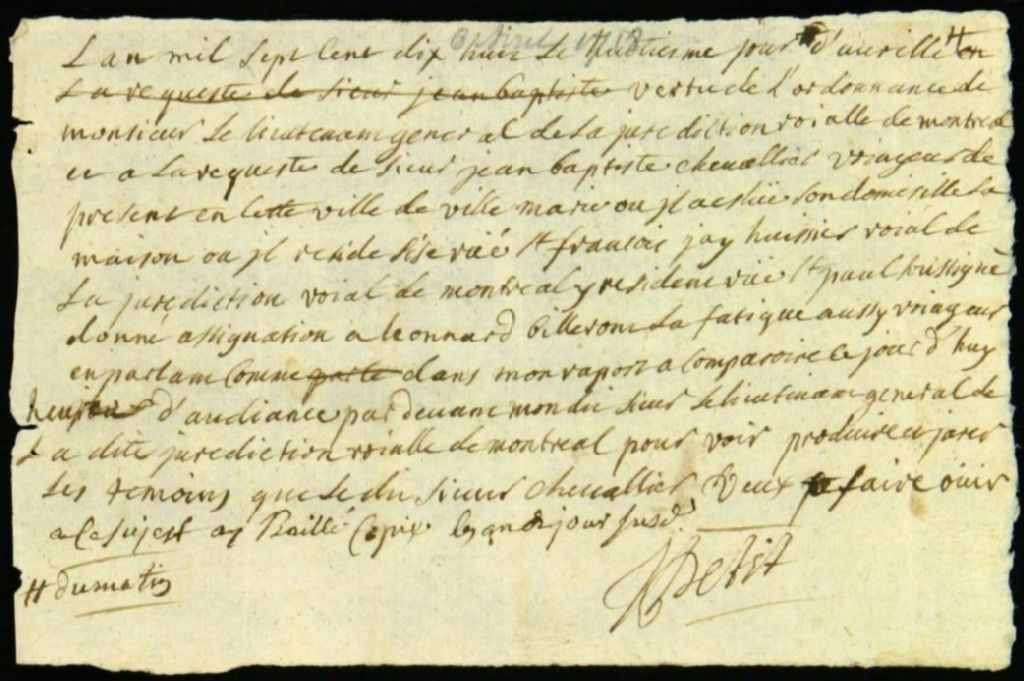 Lan mil sept cent dix huit le huitiesme jour d'avrille # en
La requeste de sieur jean baptiste vertu de L'ordonnance de
monsieur Le lieutenam general de La juridiction roialle de montreal
et a La requeste de sieur jean baptiste chevallier voiageur de
present en cette ville de ville marie ou jl a eslüe son domicille La
maison ou jl reside sise rüe St francois jay huissier roial de
La juridiction roial de montreal y resident rüe St paul soussigné
donné assignation a leonnard billerom La fatigue aussy voiageur
en parlam comme parle dans mon raport a comparoire ce jour d'huy
heure d'audiance par devant mon dit sieur Le lieutenam general de
La dite juridiction roialle de montreal pour voir produire et jurer
Les temoins que Le dit sieur chevallier veux faire ouir
a ce sujest et Baillé Copie les an et jour susd.
# du matin
Petit